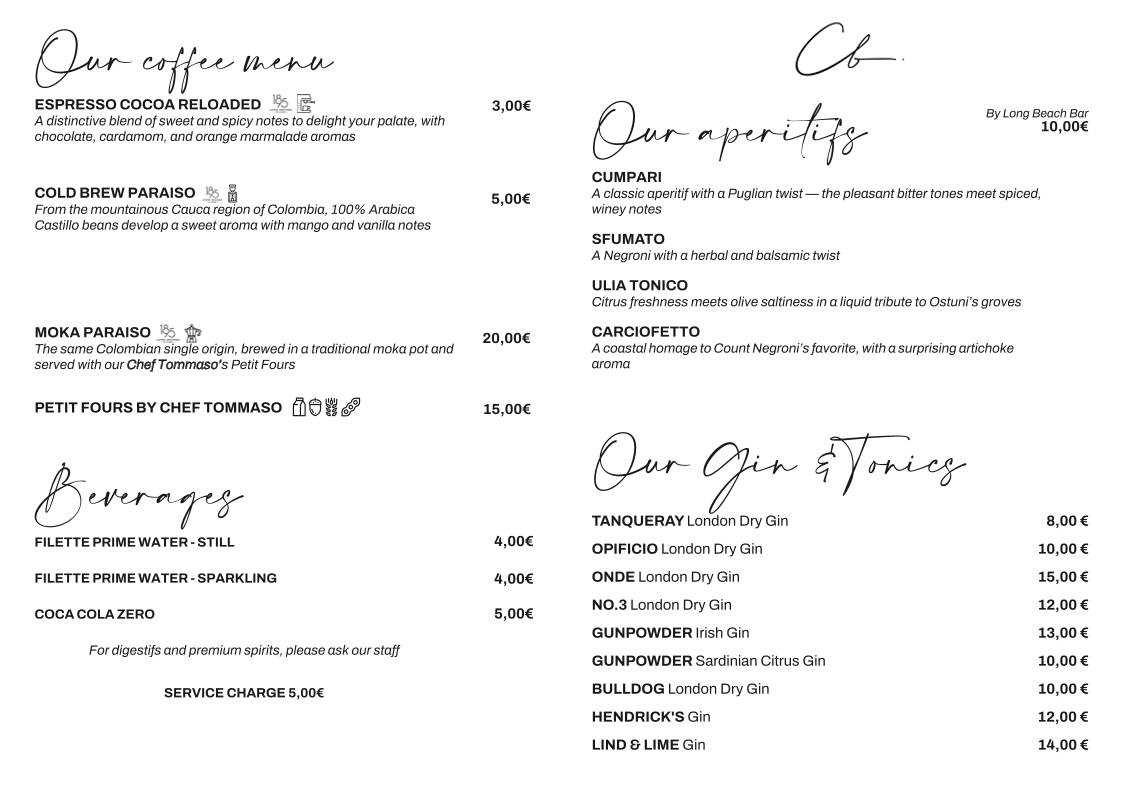 Our coffee menu
ESPRESSO COCOA RELOADED 3,00€
A distinctive blend of sweet and spicy notes to delight your palate, with
chocolate, cardamom, and orange marmalade aromas
COLD BREW PARAISO 5,00€
From the mountainous Cauca region of Colombia, 100% Arabica
Castillo beans develop a sweet aroma with mango and vanilla notes
MOKA PARAISO 20,00€
The same Colombian single origin, brewed in a traditional moka pot and
served with our Chef Tommaso's Petit Fours
PETIT FOURS BY CHEF TOMMASO 15,00€
Beverages
FILETTE PRIME WATER - STILL 4,00€
FILETTE PRIME WATER - SPARKLING 4,00€
COCA COLA ZERO 5,00€
For digestifs and premium spirits, please ask our staff
SERVICE CHARGE 5,00€
Cb.
Our aperitifs
By Long Beach Bar
10,00€
CUMPARI
A classic aperitif with a Puglian twist — the pleasant bitter tones meet spiced,
winey notes
SFUMATO
A Negroni with a herbal and balsamic twist
ULIA TONICO
Citrus freshness meets olive saltiness in a liquid tribute to Ostuni’s groves
CARCIOFETTO
A coastal homage to Count Negroni’s favorite, with a surprising artichoke
aroma
Our Gin & Tonics
TANQUERAY London Dry Gin 8,00 €
OPIFICIO London Dry Gin 10,00 €
ONDE London Dry Gin 15,00 €
NO.3 London Dry Gin 12,00 €
GUNPOWDER Irish Gin 13,00 €
GUNPOWDER Sardinian Citrus Gin 10,00 €
BULLDOG London Dry Gin 10,00 €
HENDRICK'S Gin 12,00 €
LIND & LIME Gin 14,00 €